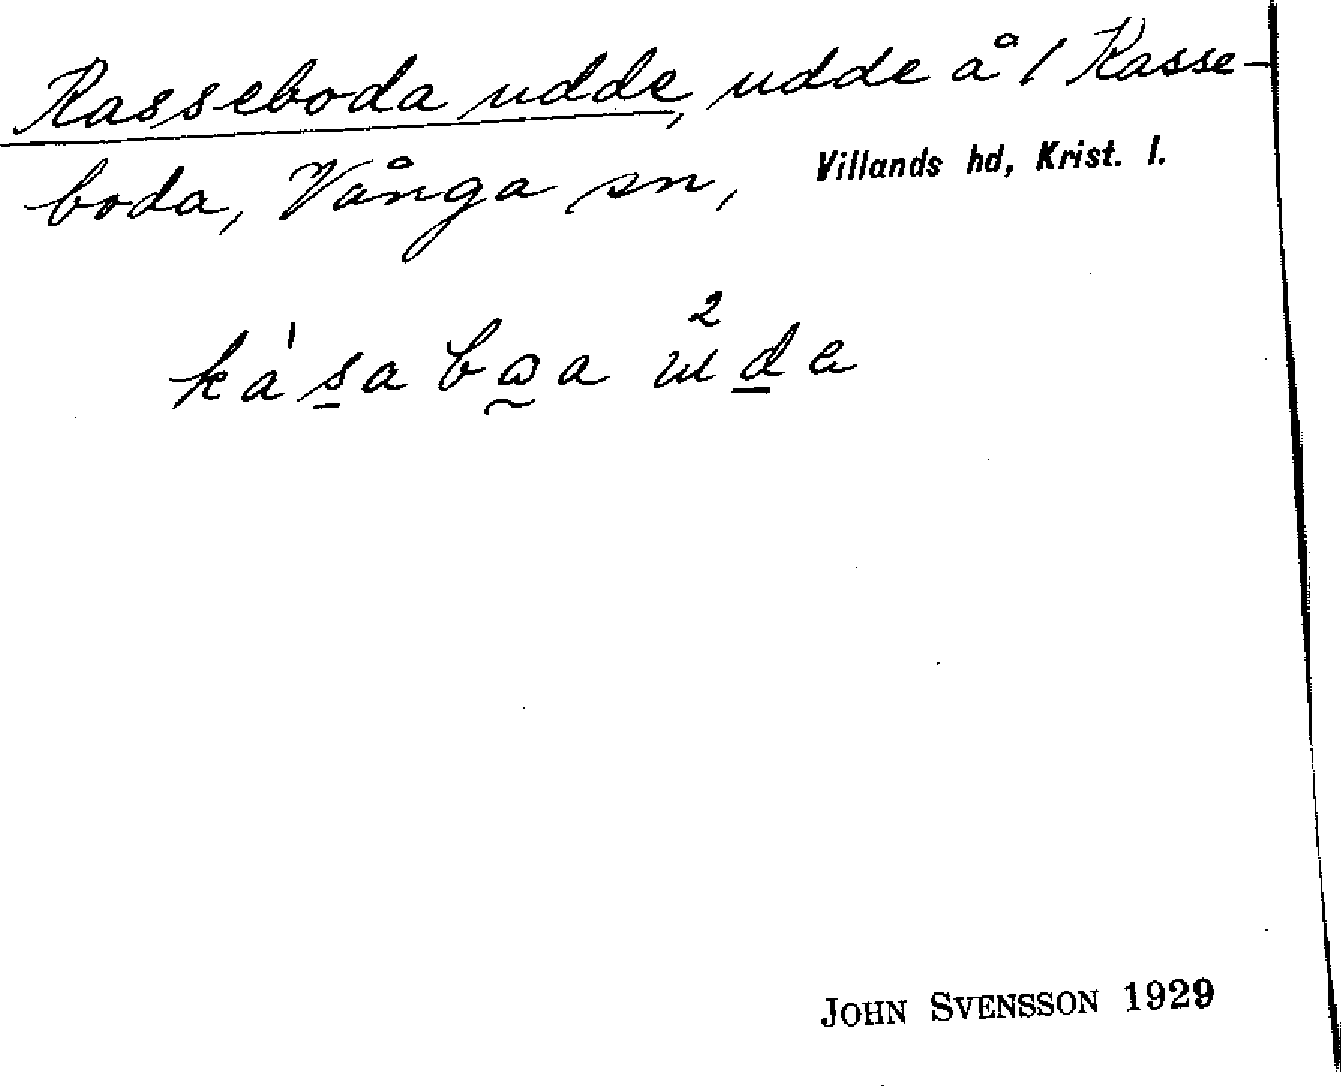 Kasseboda udde, udde å 1 Kasse-
boda, Vånga sn, Villands hd, Krist. l.
JOHN SVENSSON 1929